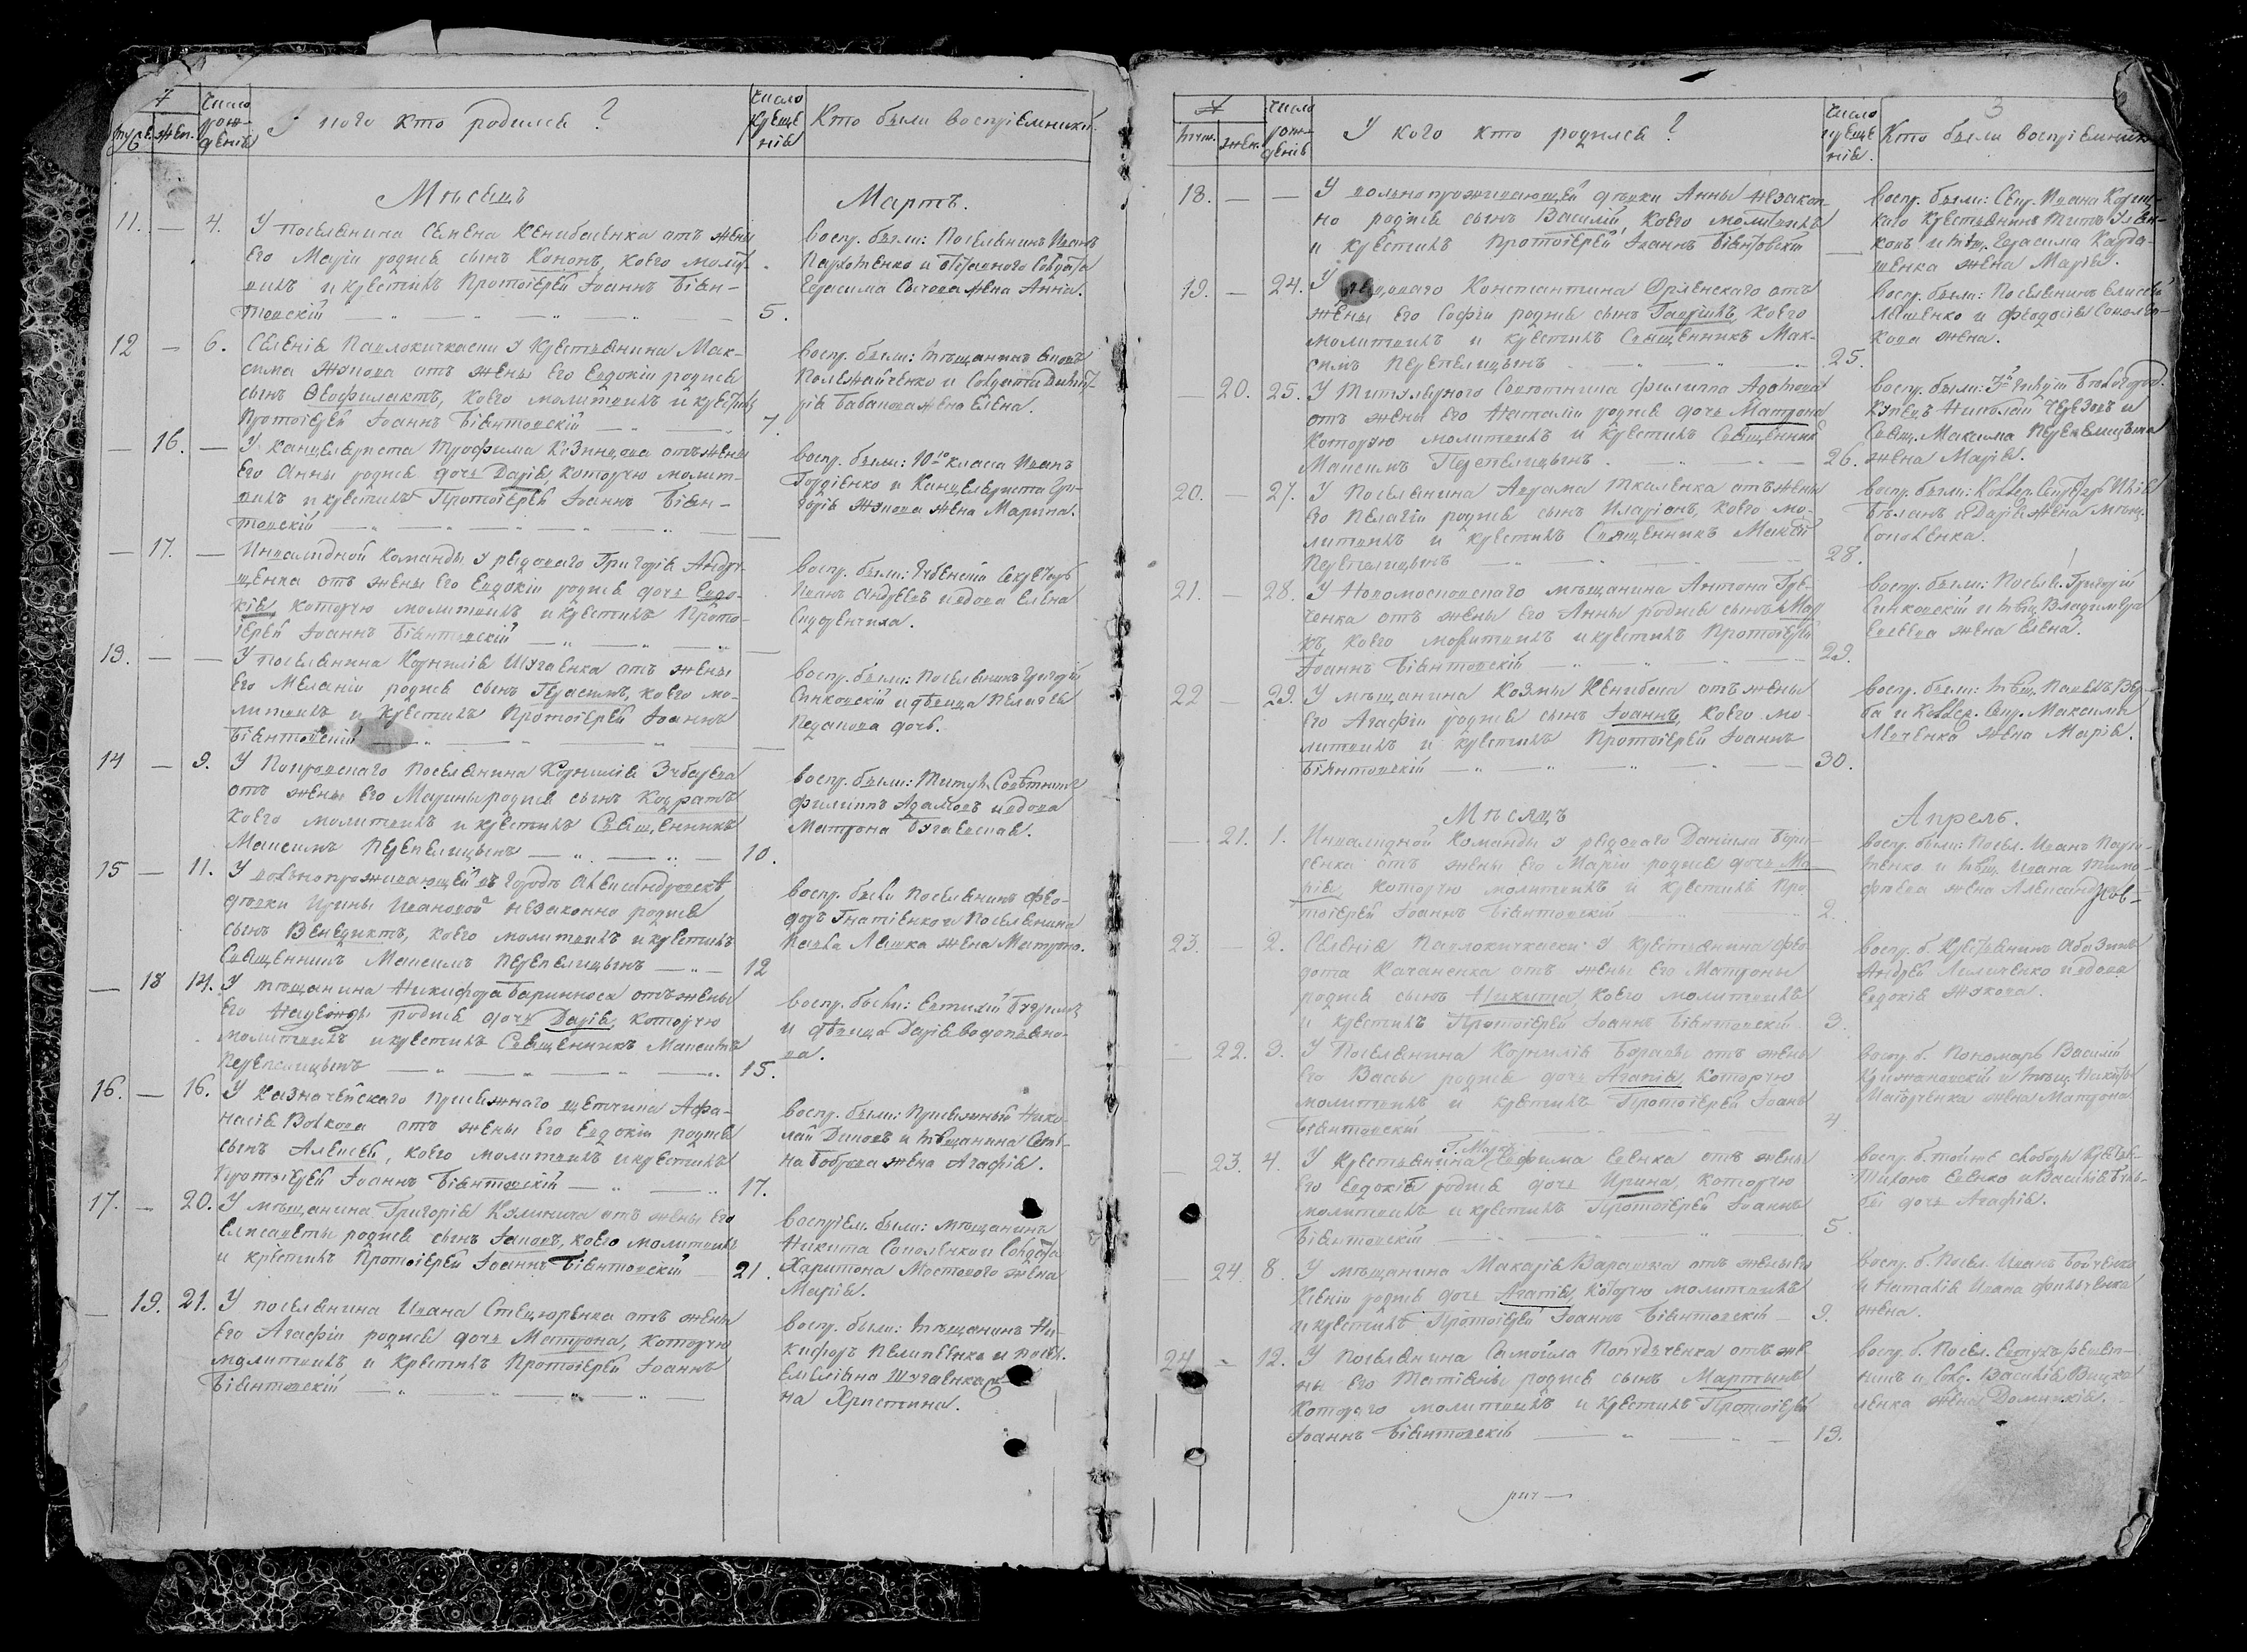 Число рожденія
У кого кто родился?
Число крещенія
Кто были воспріемники.
Мѣсяцъ
Мартъ.
11. — 4. У поселянина Семена Кенибасенка отъ жены
его Маріи родися сынъ Кононъ, коего молит-
вилъ и крестилъ Протоіерей Іоаннъ Біян-
товскій 5.
Воспр. были: Поселянинъ Иванъ
Пархоменко и отставного Солдата
Герасима Сычова жена Анна.
12 — 6. Селенія Павлокичкасни у крестьянина Мак-
сима Жукова отъ жены его Евдокіи родися
сынъ Ѳеофилактъ, коего молитвилъ и крестилъ
Протоіерей Іоаннъ Біянтовскій 7.
Воспр. были: мѣщанинъ
и Солдата Димит-
рія Бабанова жена Елена.
— 16. — У канцеляриста Трофима Кизинцова отъ жены
его Анны родися дочь Дарія, которую молит-
вилъ и крестилъ Протоіерей Іоаннъ Біян-
товскій
Воспр. были: 10го класса Иванъ
Гордіенко и Канцеляриста Гри-
горія Жукова жена Марина.
— 17. — Инвалидной команды у рядоваго Григорія Андру-
щенка отъ жены его Евдокіи родися дочь Евдо-
кія, которую молитвилъ и крестилъ Прото-
іерей Іоаннъ Біянтовскій
Воспр. были: Губенскій Секретарь
Иванъ Андреевъ и вдова Елена
Сидоренчиха.
13. — — У поселянина Корнилія Шугаенка отъ жены
его Меланіи родися сынъ Герасимъ, коего мо-
литвилъ и крестилъ Протоіерей Іоаннъ
Біянтовскій
Воспр. были: Поселянинъ Григорій
Синковскій и дѣвица Пелагея
дочь.
14 — 9. У Покровскаго поселянина Корнилія Зубарева
отъ жены его Марины родися сынъ Кодратъ
коего молитвилъ и крестилъ Священникъ
Максимъ Перепелицынъ 10.
Воспр. были: Титул. Совѣтникъ
Филиппъ Адамовъ и вдова
Матрона Бугаевская.
15 — 11. У вольнопроживающей въ городѣ Александровскѣ
дѣвки Ирины Ивановой незаконно родися
сынъ Венедиктъ, коего молитвилъ и крестилъ
Священникъ Максимъ Перепелицынъ 12
Воспр. были Поселянинъ Ѳео-
доръ Гнатіенко и Поселянина
Павла Ляшка жена Матрона.
— 18 14. У мѣщанина Никифора Баринноса отъ жены
его Надежды родися дочь Дарія, которую
молитвилъ и крестилъ Священникъ Максимъ
Перепелицынъ 15.
Воспр. были: Евтихій
и дѣвица Дарія Водопьяно-
ва.
16. — 16. У Казначейскаго присяжнаго щетчика Афа-
насія Волкова отъ жены его Евдокіи родися
сынъ Алексѣй, коего молитвилъ и крестилъ
Протоіерей Іоаннъ Біянтовскій 17.
Воспр. были: Присяжный Нико-
лай и мѣщанина Семе-
на Боброва жена Агафія.
17. — 20. У мѣщанина Григорія Калинича отъ жены его
Елисаветы родися сынъ Іаковъ, коего молитвилъ
и крестилъ Протоіерей Іоаннъ Біянтовскій 21.
Воспріем. были: мѣщанинъ
Никита Сополенко и Солдата
Харитона Мостового жена
Марія.
— 19. 21. У поселянина Ивана Стецюренка отъ жены
его Агафіи родися дочь Матрона, которую
молитвилъ и крестилъ Протоіерей Іоаннъ
Біянтовскій
Воспр. были: мѣщанинъ Ни-
кифоръ Пелипенко и посел.
Емеліяна Шугаенка же-
на Христина.
3
Число рожденія
У кого кто родился?
Число крещенія.
Кто были воспріемники
18. — — У вольнопроживающей дѣвки Анны незакон-
но родися сынъ Василій, коего молитвилъ
и крестилъ Протоіерей Іоаннъ Біянтовскій
Воспр. были: Секр. Ивана
крестьянинъ Титъ
и мѣщ. Герасима Карда-
шенка жена Марія.
19. — 24. У рядоваго Константина Орленскаго отъ
жены его Софіи родися сынъ Гавріилъ, коего
молитвилъ и крестилъ Священникъ Мак-
симъ Перепелицынъ 25.
Воспр. были: Поселянинъ Елисей
Ляшенко и Феодосія
жена.
— 20. 25. У Титулярного Совѣтника Филиппа Адамова
отъ жены его Наталіи родися дочь Матрона
которую молитвилъ и крестилъ Священникъ
Максимъ Перепелицынъ. 26.
Воспр. были: 3й гильдіи
купецъ Николай и
Свящ. Максима Перепелицына
жена Марія.
20. 27. У поселянина Авдама Ткаленка отъ жены
его Пелагіи родися сынъ Иларіонъ, коего мо-
литвилъ и крестилъ Священникъ Максимъ
Перепелицынъ 28.
Воспр. были: Коллер. Секретарь Илія
Бѣланъ и Дарія жена мѣщ.
21. — 28. У Новомосковскаго мѣщанина Антона
отъ жены его Анны родися сынъ Мар-
къ, коего молитвилъ и крестилъ Протоіерей
Іоаннъ Біянтовскій 29.
Воспр. были: Посел. Григорій
Синковскій и мѣщ. Владимера
жена Елена.
22 — 29. У мѣщанина Козмы Кенибаса отъ жены
его Агафіи родися сынъ Іоаннъ, коего мо-
литвилъ и крестилъ Протоіерей Іоаннъ
Біянтовскій 30.
Воспр. были: мѣщ. Павелъ Вер-
ба и Коллер. Секр. Максима
Левченка жена Марія.
Мѣсяцъ
Апрель.
— 21. 1. Инвалидной команды у рядоваго Даніила
отъ жены его Маріи родися дочь Ма-
рія, которую молитвилъ и крестилъ Про-
тоіерей Іоаннъ Біянтовскій 2.
Воспр. были: Посел. Иванъ Пархо-
менко и мѣщ. Ивана Тимо-
феева жена Александра
23. — 2. Селенія Павлокичкасни у крестьянина Фео-
дота Качаненка отъ жены его Матроны
родися сынъ Никита, коего молитвилъ
и крестилъ Протоіерей Іоаннъ Біянтовскій 3.
Воспр. б. крестьянинъ
Андрей и вдова
Евдокія Жукова.
— 22. 3. У поселянина Корнилія отъ жены
его Вассы родися дочь Агапія, которую
молитвилъ и крестилъ Протоіерей Іоаннъ
Біянтовскій 4.
Воспр. б. Пономарь Василій
Крижановскій и мѣщ. Никиты
жена Матрона
— 23. 4. У крестьянина Ефима Евенка отъ жены
его Евдокіи родися дочь Ирина, которую
молитвилъ и крестилъ Протоіерей Іоаннъ
Біянтовскій 5.
Воспр. б. тойже слободы крестьян.
Тихонъ Евенко и Василія
дочь Агафія.
— 24. 8. У мѣщанина Макарія Варашка отъ жены его
Ксеніи родися дочь Агапія, которую молитвилъ
и крестилъ Протоіерей Іоаннъ Біянтовскій 9.
Воспр. б. Посел. Иванъ Бойченко
и Наталія Ивана Фильченка
жена.
24 — 12. У поселянина Самойла отъ же-
ны его Татіяны родися сынъ Мартынъ
котораго молитвилъ и крестилъ Протоіерей
Іоаннъ Біянтовскій 13.
Воспр. б. Посел.
и Солд. Василія
жена Домникія.